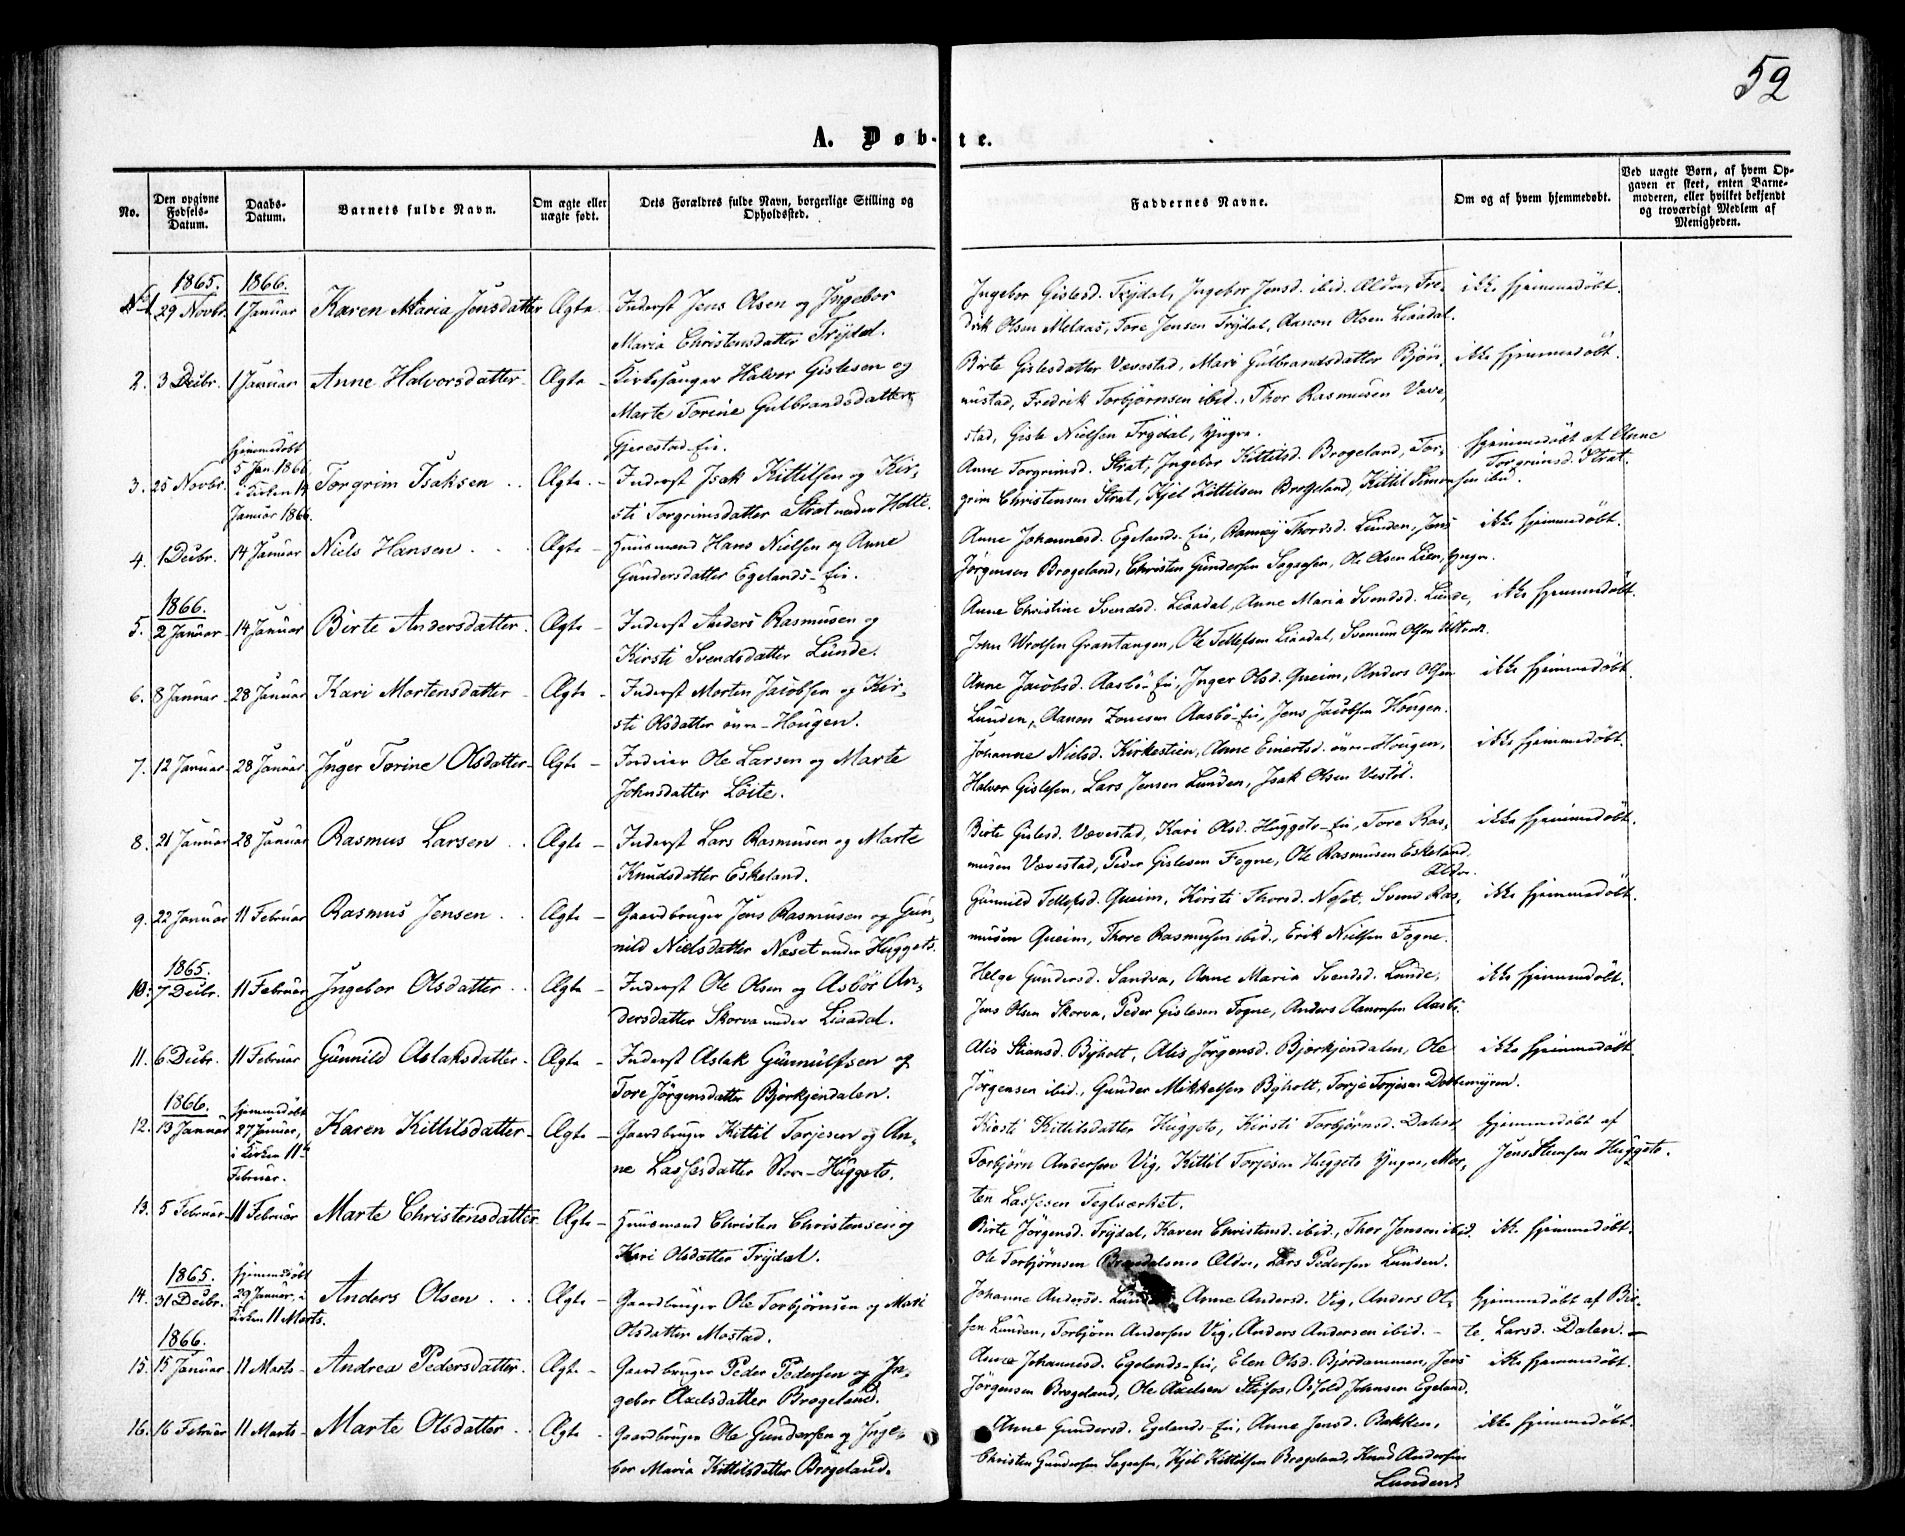 52
A. Døb-te.
No.
Den opgivne Fødsels-Datum.
Daabs-Datum.
Barnets fulde Navn.
Om ægte eller uægte født.
Dets Forældres fulde Navn, borgerlige Stilling og Opholdssted.
Faddernes Navne.
Om og af hvem hjemmedøbt.
Ved uægte Børn, af hvem Opgaven er skeet, enten Barnemoderen, eller hvilket bekjendt og troværdigt Medlem af Menigheden.
1865. 1866.
No 1. 29 Novbr. 1 Januar Karen Maria Jensdatter Ægte. Inderst Jens Olsen og Ingebor Ingebor Gislesd. Trydal, Ingebor Jensd. ibid. Ældre, Fre- ikke hjemmedøbt.
Maria Christensdatter Trydal. drik Olsen Melaas, Tore Jensen Trydal, Aanon Olsen Liaadal.
2. 3 Decbr. 1 Januar Anne Halvorsdatter Ægte Kirkesanger Halvor Gislesen og Birte Gislesdatter Vævestad, Mari Gulbrandsdatter Bjön- ikke hjemmedøbt.
Marte Torine Gulbrandsdatter nustad, Fredrik Torbjörnsen ibid., Thor Rasmusen Væve-
Gjerestad-Eie. stad, Gisle Nielsen Trydal, Yngre.
3. 25 Novbr. hjemmedøbt 5 Jan. 1866, i Kirken 14 Januar 1866. Torgrim Isaksen Ægte Inderst Isak Kittilsen og Kir- Anne Torgrimsd. Strat, Ingebor Kittilsd. Brogeland, Tor- hjemmedøbt af Anne
sti Torgrimsdatter Strat under Holte. grim Christensen Strat, Kjel Kittilsen Brogeland, Kittil Simonsen ibid. Torgrimsd. Strat.
4. 1 Decbr. 14 Januar Niels Hansen Ægte Huusmand Hans Nielsen og Anne Anne Johannesd. Egelands-Eie, Thorsd. Lunden, Jens ikke hjemmedøbt.
Gundersdatter Egelands-Eie. Jørgensen Brogeland, Christen Gundersen Sagaasen, Ole Olsen Lien, Yngre.
1866.
5. 2 Januar 14 Januar Birte Andersdatter Ægte Inderst Anders Rasmusen og Anne Christine Svendsd. Liaadal, Anne Maria Svendsd. Lunde, ikke hjemmedøbt.
Kirsti Svendsdatter Lunde. John Grantangen, Ole Tellefsen Liaadal, Olsen
6. 8 Januar 28 Januar Kari Mortensdatter Ægte Inderst Morten Jacobsen og Kir- Anne Jacobsd. Aasbö-Eie, Inger Olsd. Queim, Anders Olsen ikke hjemmedøbt.
sti Olsdatter övre-Hougen. Lunden, Aanon Aasbö-Eie, Jens Jacobsen Hougen.
7. 12 Januar 28 Januar Inger Torine Olsdatter Ægte Ole Larsen og Marte Johanne Nielsd. Kirkestien, Anne Einertsd. övre-Hougen, ikke hjemmedøbt.
Johnsdatter Löite. Halvor Gislesen, Lars Jensen Lunden, Isak Olsen Vestöl.
8. 21 Januar 28 Januar Rasmus Larsen Ægte Inderst Lars Rasmusen og Marte Birte Gislesd. Vævestad, Kari Olsd. Huggets-Eie, Tore Ras- ikke hjemmedøbt.
Knudsdatter Eskeland. musen Vævestad, Peder Gislesen Fogne, Ole Rasmusen Eskeland, Ældre.
9. 22 Januar 11 Februar Rasmus Jensen Ægte Gaardbruger Jens Rasmusen og Gun- Gunnild Tellefsd. Queim, Kirsti Thorsd. Neset, Svend Ras- ikke hjemmedøbt.
nild Nielsdatter Næset under Huggets. musen Queim, Thore Rasmusen ibid., Erik Nielsen Fogne.
1865.
10. 7 Decbr. 11 Februar Ingebor Olsdatter Ægte Inderst Ole Olsen og Asbör An- Helge Gundersd. Sandvá, Anne Maria Svendsd. Lunde, ikke hjemmedøbt.
dersdatter Skorva under Liaadal. Jens Olsen Skorva, Peder Gislesen Fogne, Anders Aanonsen Aasbö.
11. 6 Decbr. 11 Februar Gunnild Aslaksdatter Ægte Inderst Aslak Gunnulfsen og Alis Byholt, Alis Jørgensd. Bjørkjendalen, Ole ikke hjemmedøbt.
Tore Jörgensdatter Bjørkjendalen. Jørgensen ibid., Gunder Mikkelsen Byholt, Torje Torjesen Dobbemyren.
1866.
12. 13 Januar hjemmedøbt 27 Januar, i Kirken 11te Februar. Karen Kittilsdatter Ægte Gaardbruger Kittil Torjesen og An- Kirsti Kittilsdatter Huggets, Kirsti Torbjørnsd. Dalen hjemmedøbt af
ne Lassesdatter Store-Huggets. Torbjörn Andersen Vig, Kittil Torjesen Huggets Yngre, Mor- Jens Huggets.
ten Lassesen Teglværket.
13. 5 Februar 11 Februar Marte Christensdatter Ægte Huusmand Christen Christensen og Birte Jörgensd. Trydal, Karen Christensd. ibid., Thor Jensen ibid. ikke hjemmedøbt.
Kari Olsdatter Trydal. Ole Torbjörnsen Ældre, Lars Pedersen Lunden.
1865.
14. 31 Decbr. hjemmedøbt 29 Januar, i Kirken 11 Marts. Anders Olsen Ægte Gaardbruger Ole Torbjörnsen og Mari Johanne Andersd. Lunden, Anne Andersd. Vig, Anders Ol- hjemmedøbt af Bir-
Olsdatter Mostad. sen Lunden, Torbjörn Andersen Vig, Anders Andersen ibid. te Larsd. Dalen.
1866.
15. 15 Januar 11 Marts Andrea Pedersdatter Ægte Gaardbruger Peder Pedersen og In- Anne Johannesd. Egelands-Eie, Elen Olsd. Bjordammen, Jens ikke hjemmedøbt.
gebor Axelsdatter Brogeland. Jörgensen Brogeland, Ole Axelsen Stifos, Osfold Johnsen Egeland.
16. 16 Februar 11 Marts Marte Olsdatter Ægte Gaardbruger Ole Gundersen og Inge- Anne Gundersd. Egelands-Eie, Anne Jensd. Bakken, ikke hjemmedøbt.
bor Maria Kittilsdatter Brogeland. Christen Gundersen Sagaasen, Kjel Kittilsen Brogeland, Knud Andersen
Lunden.